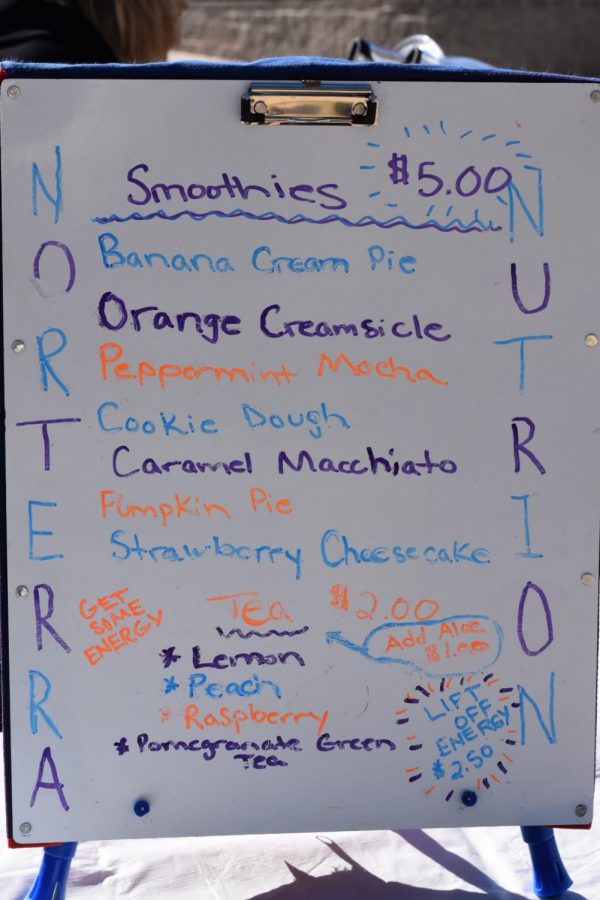 NORTERRA
Smoothies $5.00
Banana Cream Pie
Orange Creamsicle
Peppermint Mocha
Cookie Dough
Caramel Macchiato
Pumpkin Pie
Strawberry Cheesecake
GET
SOME
ENERGY
Tea $2.00
Add Aloe
$1.00
* Lemon
* Peach
* Raspberry
* Pomegranate Green
Tea
LIFT
OFF
ENERGY
$2.50
NUTRION